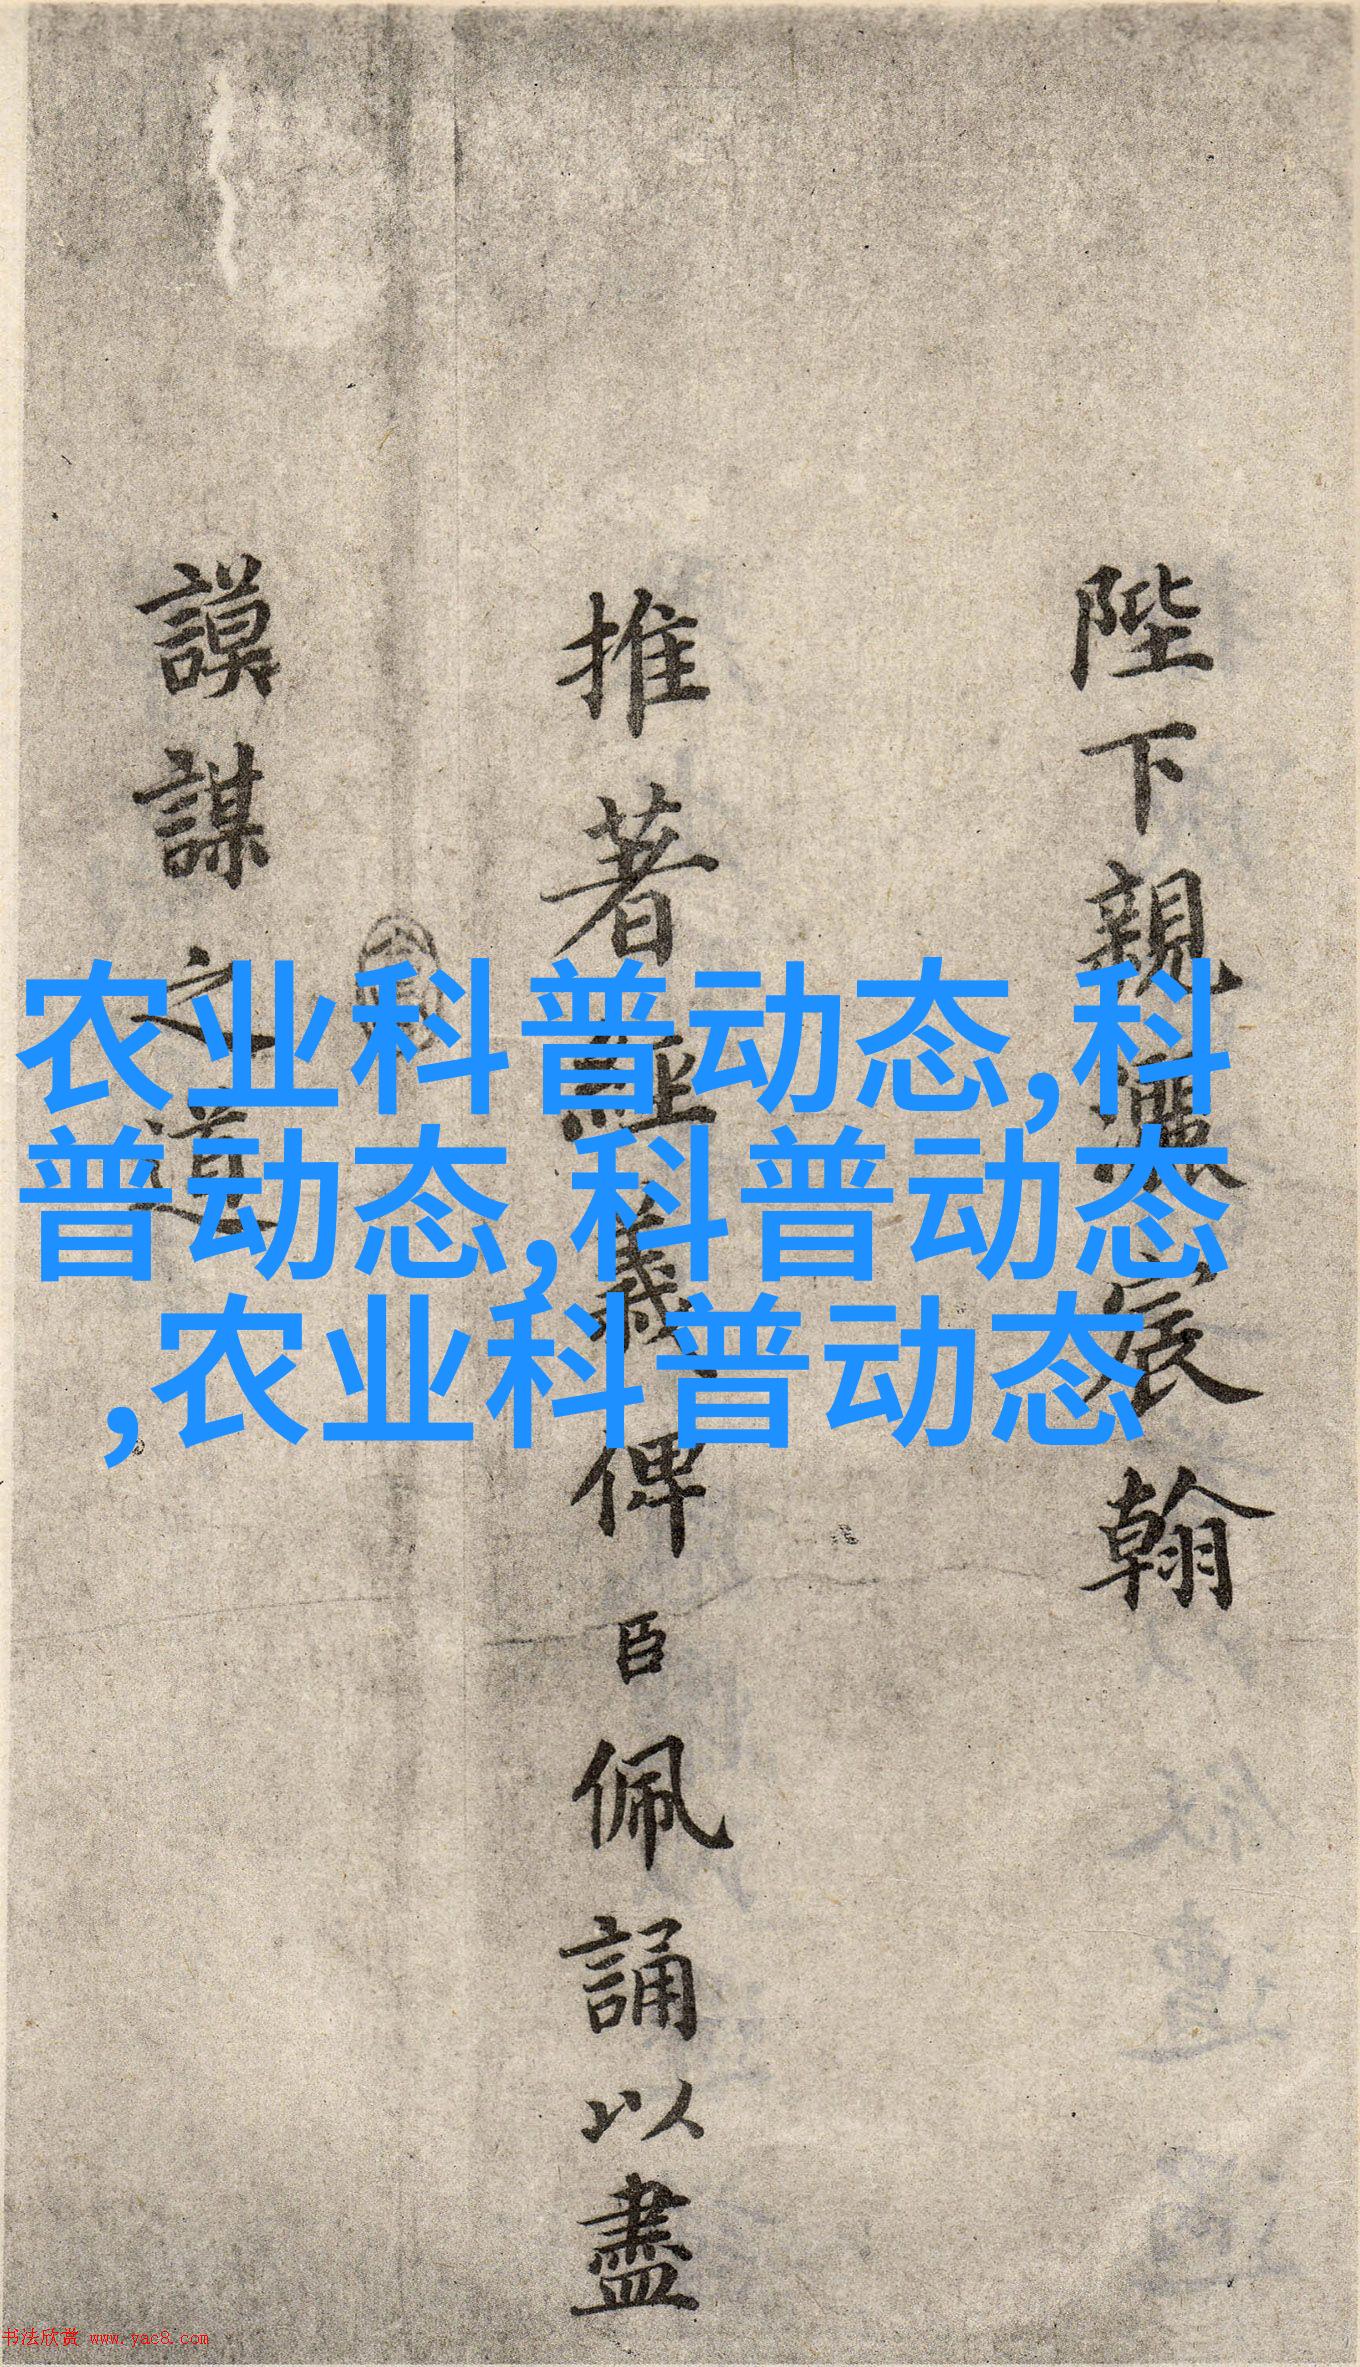 陛下親灑宸翰
推著經義俾臣佩誦以盡
謨謀之道
农业科普动态,科
普动态,科普动态
,农业科普动态
书法欣赏 www.yac8.com